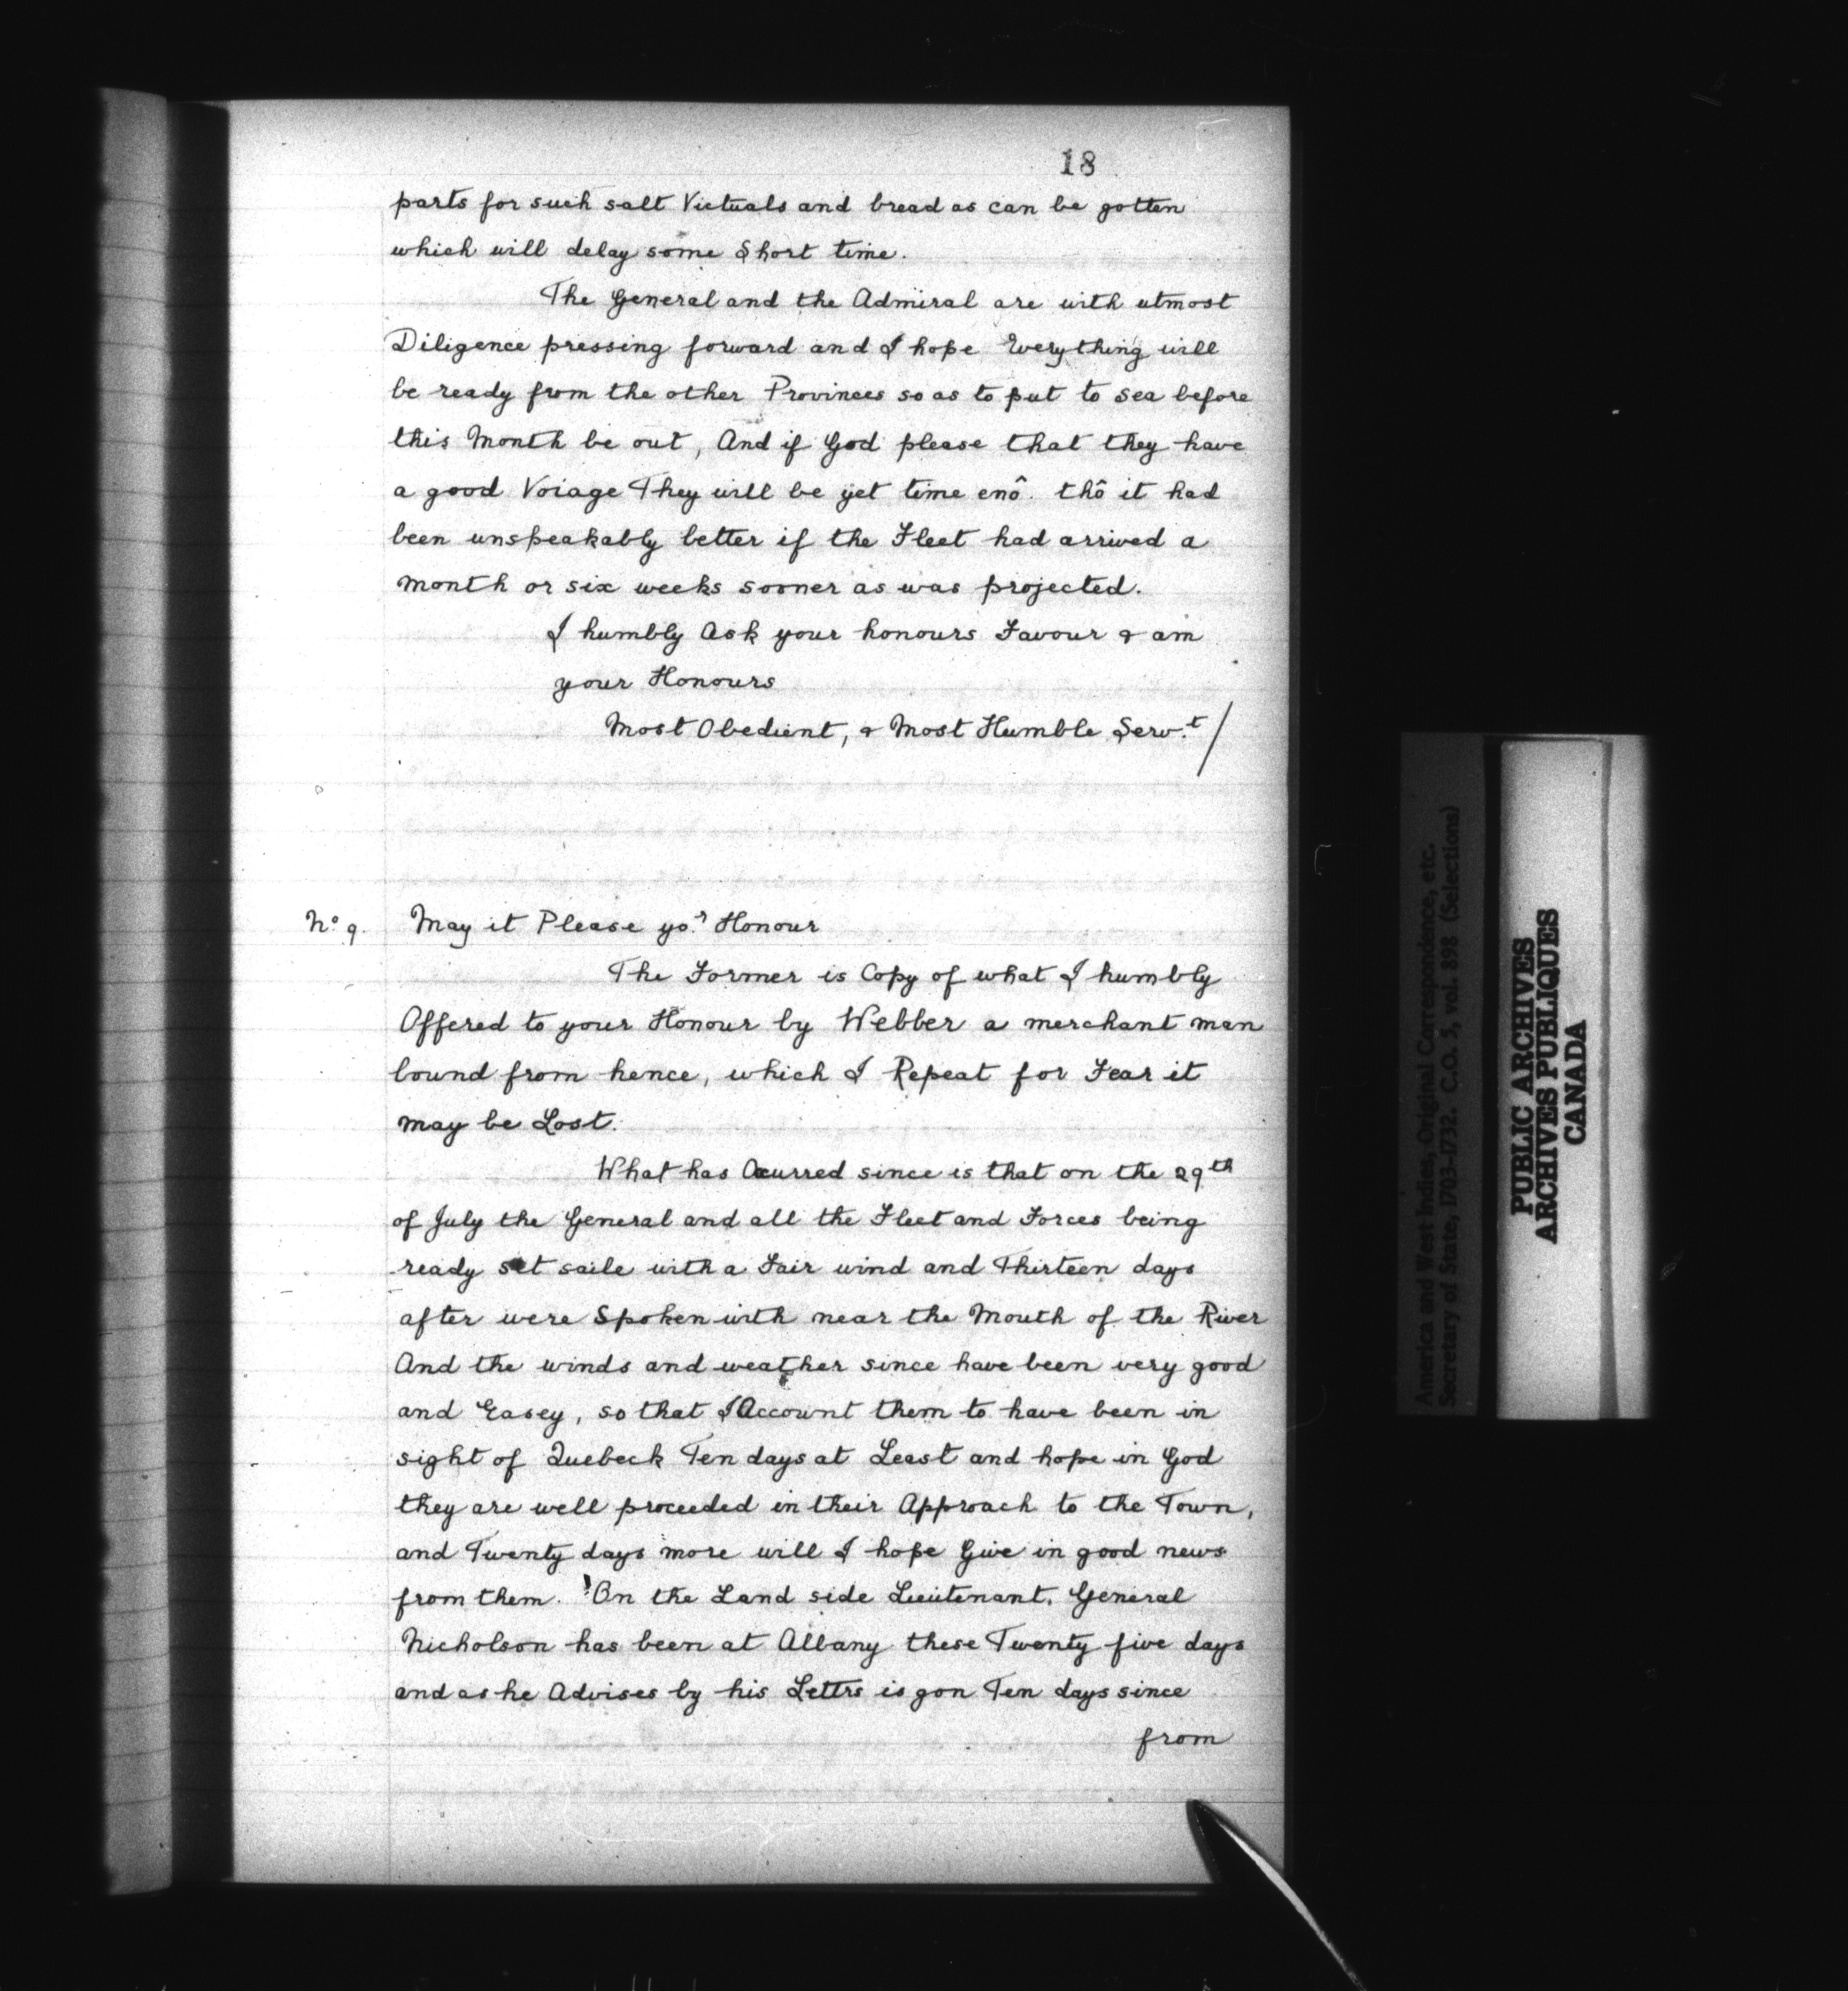 18
parts for such salt Victuals and bread as can be gotten
which will delay some Short time.
The General and the Admiral are with utmost
Diligence pressing forward and I hope Everything will
be ready from the other Provinces so as to put to sea before
this Month be out, And if God please that they have
a good Voiage They will be yet time enô. thô it had
been unspeakably better if the Fleet had arrived a
Month or six weeks sooner as was projected.
I humbly Ask your honours Favour & am
your Honours
Most Obedient, & Most Humble Serv.t/
No. 9. May it Please yo.r Honour
The Former is Copy of what I humbly
Offered to your Honour by Webber a merchant man
bound from hence, which I Repeat for Fear it
may be Lost.
What has Ocurred since is that on the 29th
of July the General and all the Fleet and Forces being
ready set saile with a Fair wind and Thirteen days
after were Spoken with near the Mouth of the River
And the winds and weather since have been very good
and Easey, so that I Account them to have been in
sight of Quebeck Ten days at Least and hope in God
they are well proceeded in their Approach to the Town,
and Twenty days more will I hope Give in good news
from them. On the Land side Lieutenant. General
Nicholson has been at Albany these Twenty five days
and as he Advises by his Lettrs is gon Ten days since
from
America and West Indies, Original Correspondence, etc.
Secretary of State, 1703-1732. C.O. 5, vol. 898 (Selections)
PUBLIC ARCHIVES
ARCHIVES PUBLIQUES
CANADA